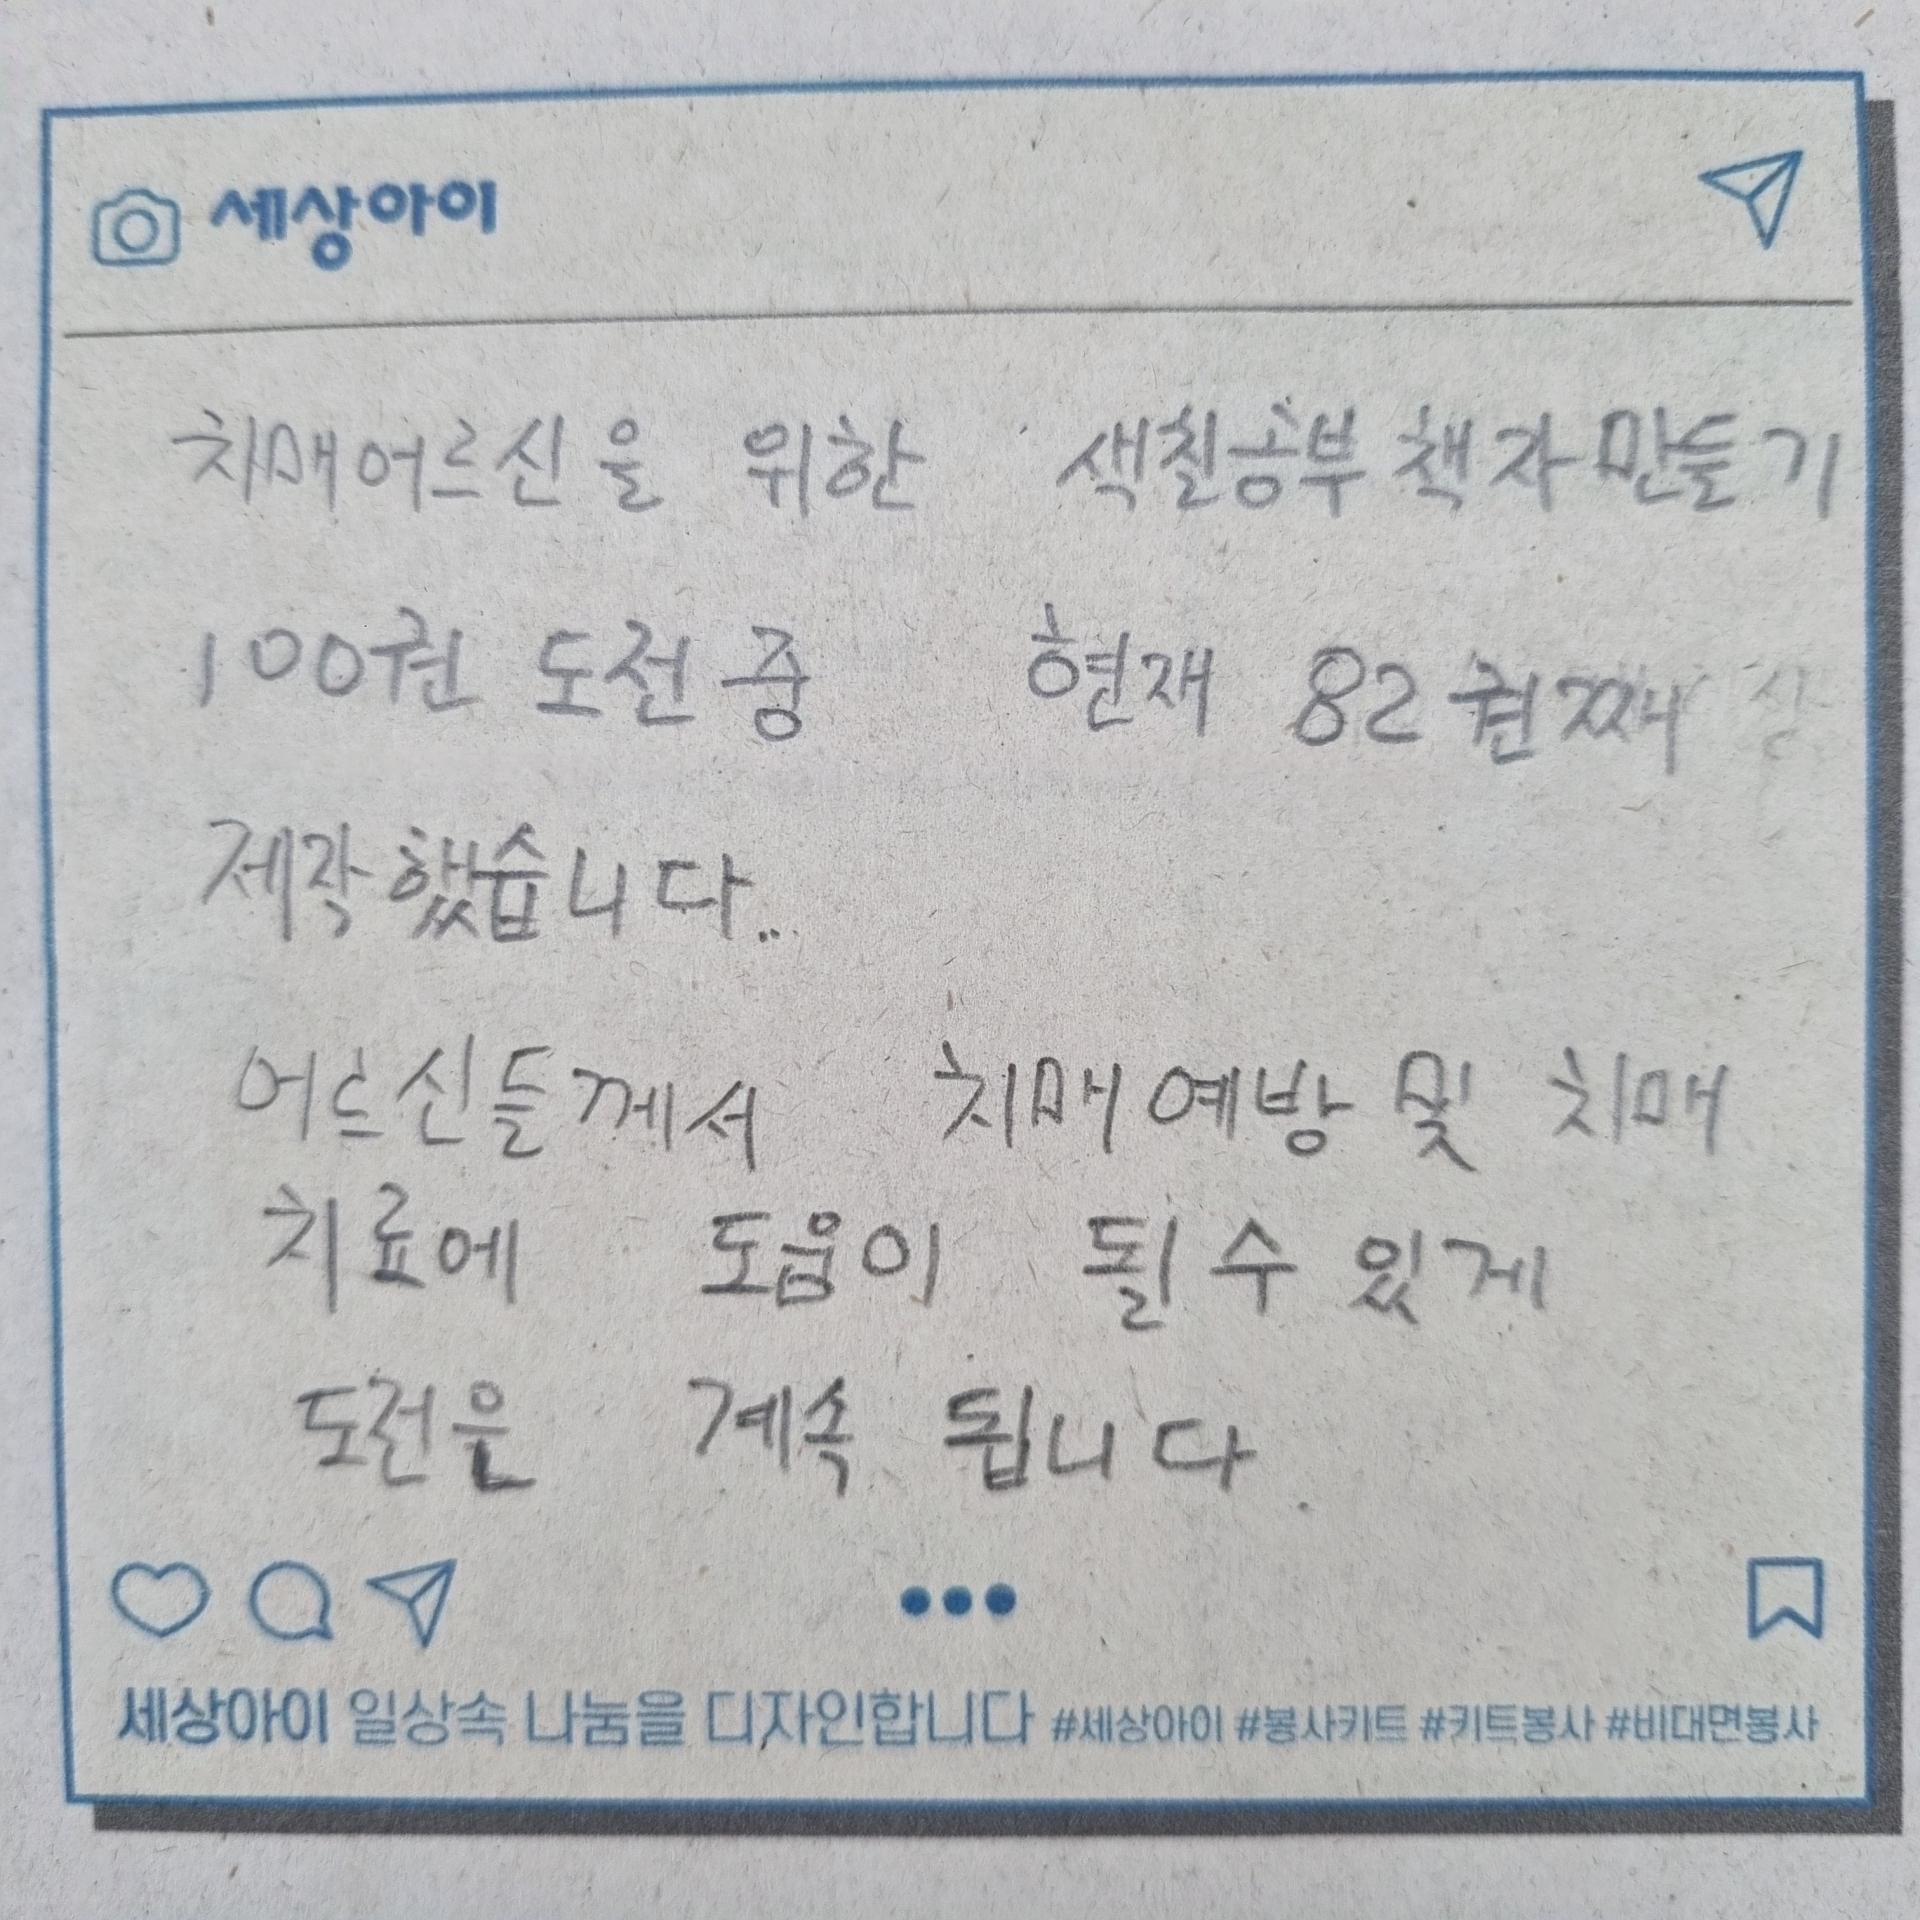 세상아이
치매어르신을 위한 색칠공부책자만들기
100권 도전중 현재 82권째
제작했습니다..
어르신들께서 치매예방 및 치매
치료에 도움이 될 수 있게
도전은 계속 됩니다.
세상아이 일상속 나눔을 디자인합니다 #세상아이 #봉사키트 #키트봉사 #비대면봉사